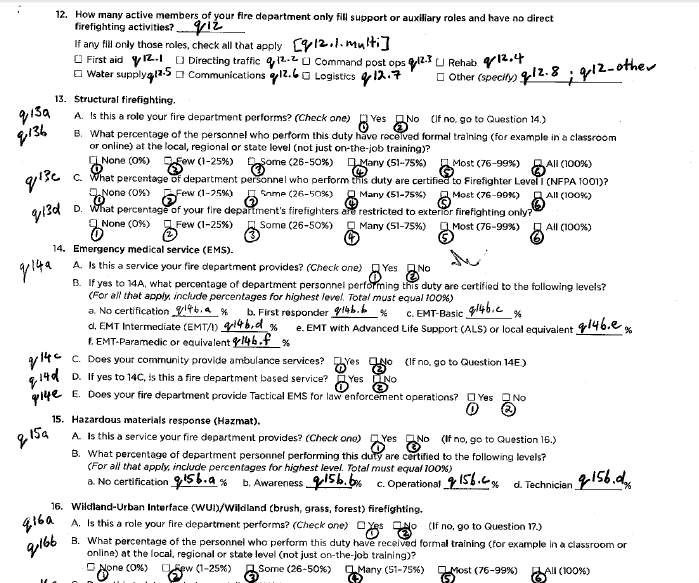 12. How many active members of your fire department only fill support or auxiliary roles and have no direct
firefighting activities? q12
If any fill only those roles, check all that apply [q12.1.multi]
☐ First aid q12.1 ☐ Directing traffic q12.2 ☐ Command post ops q12.3 ☐ Rehab q12.4
☐ Water supply q12.5 ☐ Communications q12.6 ☐ Logistics q12.7 ☐ Other (specify) q12.8 ; q12-other
13. Structural firefighting.
q13a A. Is this a role your fire department performs? (Check one) ☐ Yes ☐ No (If no, go to Question 14.)
1 2
q13b B. What percentage of the personnel who perform this duty have received formal training (for example in a classroom
or online) at the local, regional or state level (not just on-the-job training)?
☐ None (0%) ☐ Few (1-25%) ☐ Some (26-50%) ☐ Many (51-75%) ☐ Most (76-99%) ☐ All (100%)
1 2 3 4 5 6
q13c C. What percentage of department personnel who perform this duty are certified to Firefighter Level I (NFPA 1001)?
☐ None (0%) ☐ Few (1-25%) ☐ Some (26-50%) ☐ Many (51-75%) ☐ Most (76-99%) ☐ All (100%)
1 2 3 4 5 6
q13d D. What percentage of your fire department's firefighters are restricted to exterior firefighting only?
☐ None (0%) ☐ Few (1-25%) ☐ Some (26-50%) ☐ Many (51-75%) ☐ Most (76-99%) ☐ All (100%)
1 2 3 4 5 6
14. Emergency medical service (EMS).
q14a A. Is this a service your fire department provides? (Check one) ☐ Yes ☐ No
1 2
B. If yes to 14A, what percentage of department personnel performing this duty are certified to the following levels?
(For all that apply, include percentages for highest level. Total must equal 100%)
a. No certification q14b.a % b. First responder q14b.b % c. EMT-Basic q14b.c %
d. EMT Intermediate (EMT/I) q14b.d % e. EMT with Advanced Life Support (ALS) or local equivalent q14b.e %
f. EMT-Paramedic or equivalent q14b.f %
q14c C. Does your community provide ambulance services? ☐ Yes ☐ No (If no, go to Question 14E.)
1 2
q14d D. If yes to 14C, is this a fire department based service? ☐ Yes ☐ No
1 2
q14e E. Does your fire department provide Tactical EMS for law enforcement operations? ☐ Yes ☐ No
1 2
15. Hazardous materials response (Hazmat).
q15a A. Is this a service your fire department provides? (Check one) ☐ Yes ☐ No (If no, go to Question 16.)
1 2
B. What percentage of department personnel performing this duty are certified to the following levels?
(For all that apply, include percentages for highest level. Total must equal 100%)
a. No certification q15b.a % b. Awareness q15b.b % c. Operational q15b.c % d. Technician q15b.d %
16. Wildland-Urban Interface (WUI)/Wildland (brush, grass, forest) firefighting.
q16a A. Is this a role your fire department performs? (Check one) ☐ Yes ☐ No (If no, go to Question 17.)
1 2
q16b B. What percentage of the personnel who perform this duty have received formal training (for example in a classroom or
online) at the local, regional or state level (not just on-the-job training)?
☐ None (0%) ☐ Few (1-25%) ☐ Some (26-50%) ☐ Many (51-75%) ☐ Most (76-99%) ☐ All (100%)
1 2 3 4 5 6